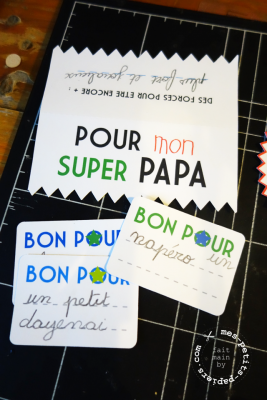 plus fort et
DES FORCES POUR ETRE ENCORE +
POUR mon
SUPER PAPA
BON POUR
BON POUR un
napéro
BON POUR
un petit
dayenai
mes-petits-papiers.com
fait
main
by